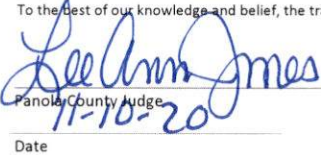 To the best of our knowledge and belief, the tr
LeeAnn Jones
Panola County Judge
11-10-20
Date